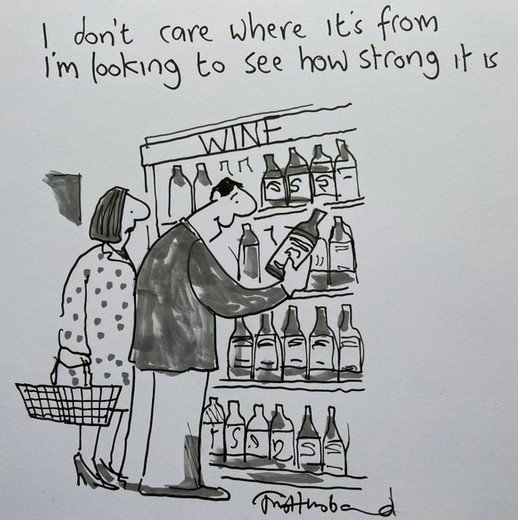 I don't care where it's from
I'm looking to see how strong it is
WINE